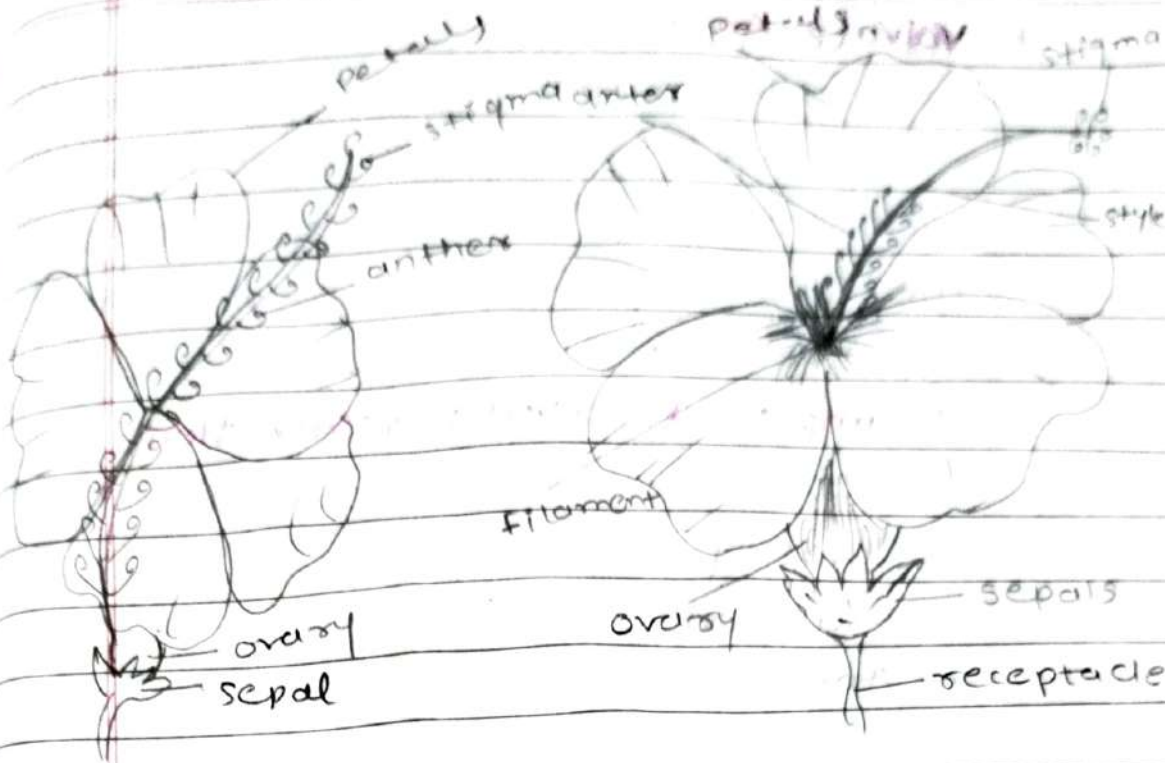 petals
stigma anter
anther
ovary
sepal
petals
stigma
style
Filament
ovary
sepals
receptacle